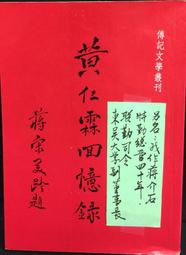 傳記文學叢刊
黃仁霖回憶錄
蔣宋美齡題
又名:我作蔣介石
特勤總管四十年
聯勤司令
東吳大學副董事長